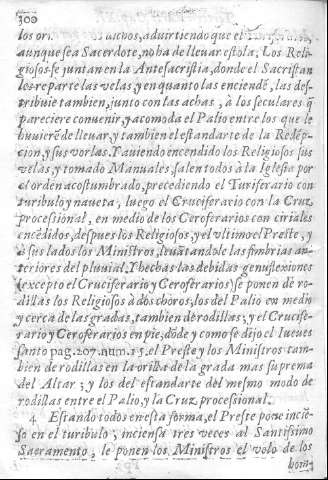 300
los ori dichos, advirtiendo que el Turiferario,
aunque sea Sacerdote, no ha de llevar estola; Los Reli-
giosos se juntan en la Antesacristia, donde el Sacristan
les reparte las velas, y en quanto las enciendẽ, las des-
tribuie tambien, junto con las achas, à los seculares q̃
pareciere convenir, y acomoda el Palio entre los que le
huviere de llevar, y tambien el estandarte de la Redẽp-
cion, y sus vorlas. Y aviendo encendido los Religiosos sus
velas, y tomado Manuales, salen todos à la Iglesia por
el orden acostumbrado, precediendo el Turiferario con
turibulo y naveta, luego el Cruciferario con la Cruz
processional, en medio de los Ceroferarios con ciriales
encẽdidos, despues los Religiosos, y el ultimo el Preste, y
à sus lados los Ministros, levãtandole las fimbrias an-
teriores del pluvial. Y hechas las debidas genuflexiones
(excepto el Cruciferario y Ceroferarios) se ponen de ro-
dillas los Religiosos à dos choros, los del Palio en medio
y cerca de las gradas, tambien de rodillas; y el Crucife-
rario y Ceroferarios en pie, dõde y como se dijo el Iueves
santo pag. 207. num. 15. el Preste y los Ministros tam-
bien de rodillas en la orilla de la grada mas suprema
del Altar; y los del estandarte del mesmo modo de
rodillas entre el Palio, y la Cruz processional.
4 Estando todos en esta forma, el Preste pone incie-
so en el turibulo; inciensa tres veces al Santissimo
Sacramento, le ponen los Ministros el velo de los
hom-